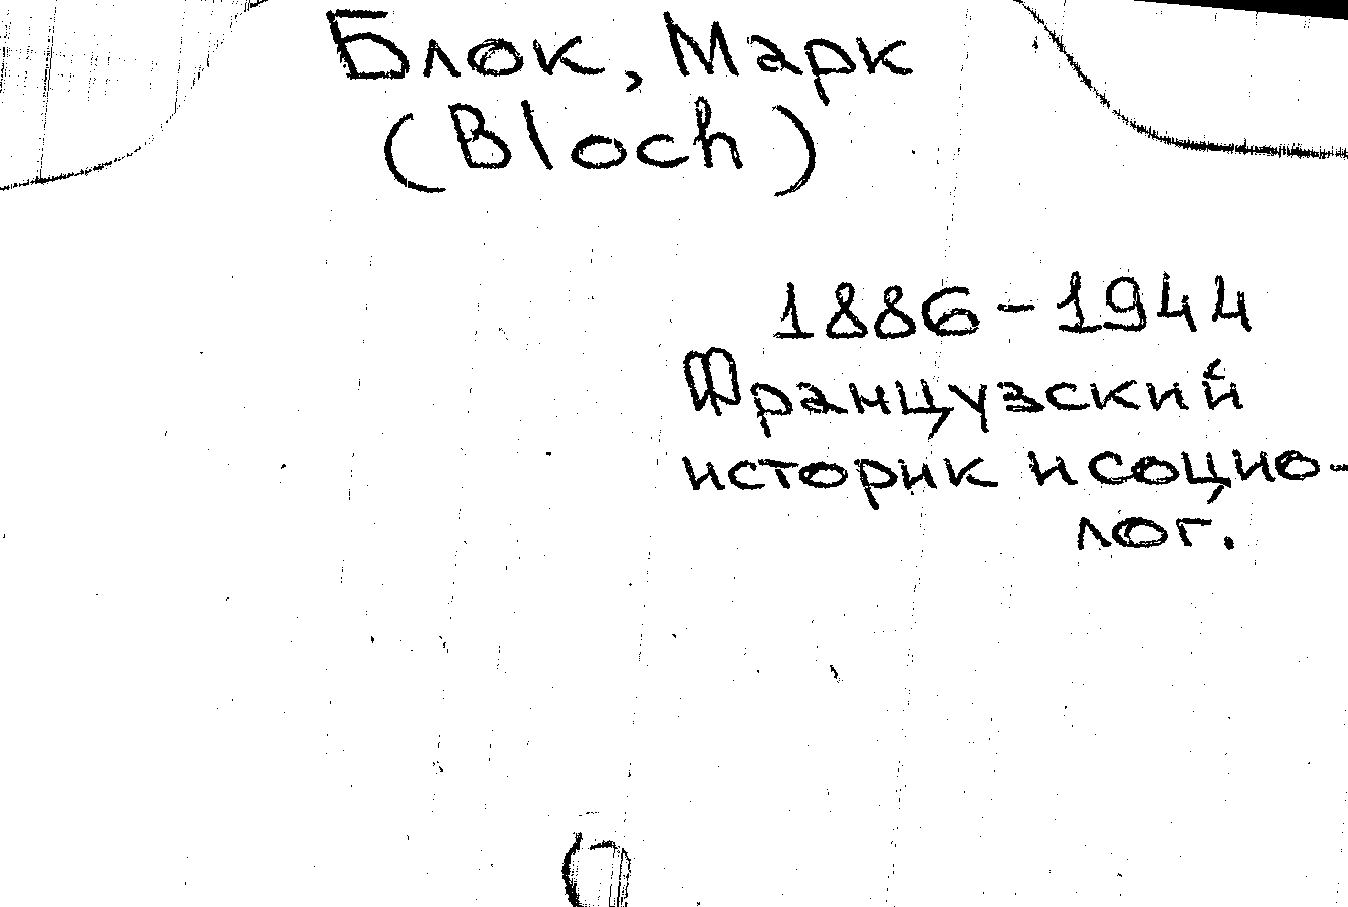 Блок, Марк
(Bloch)
1886-1944
Французский
историк и социо-
лог.